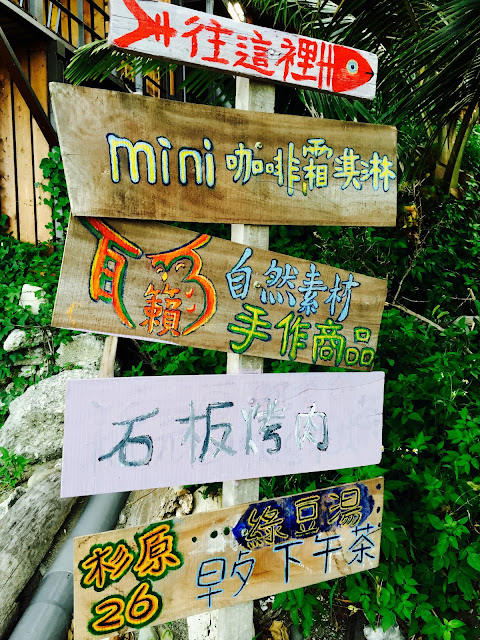 往這裡
mini 咖啡霜淇淋
籟
自然素材
手作商品
石板烤肉
綠豆湯
杉原
26
早夕下午茶